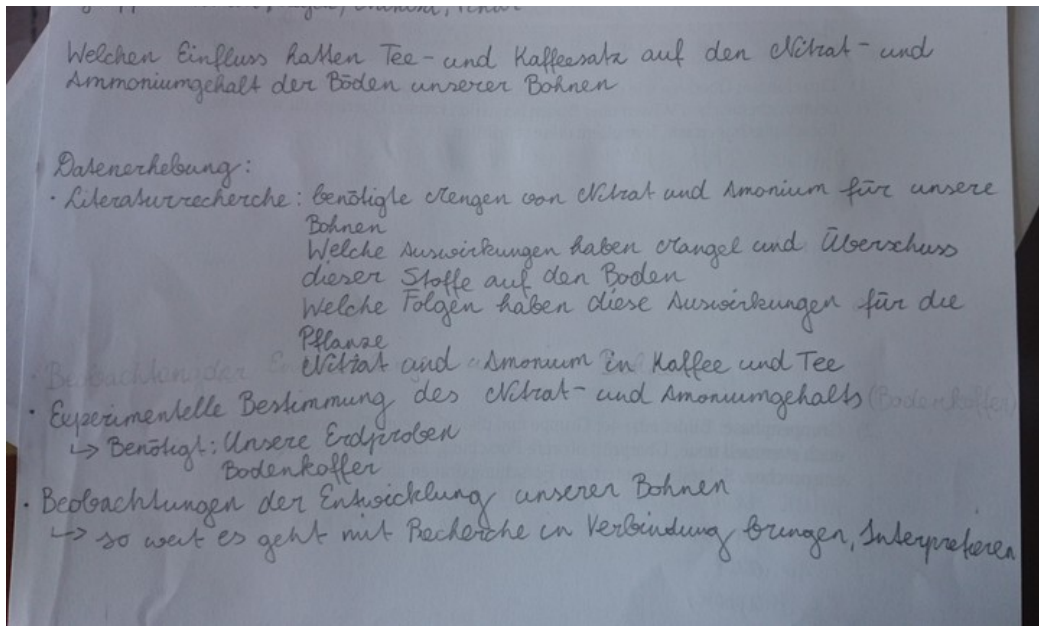 Welchen Einfluss hatten Tee- und Kaffeesatz auf den Nitrat- und
Ammoniumgehalt der Böden unserer Bohnen
Datenerhebung:
· Literaturrecherche: benötigte Mengen von Nitrat und Amonium für unsere
Bohnen
Welche Auswirkungen haben Mangel und Überschuss
dieser Stoffe auf den Boden
Welche Folgen haben diese Auswirkungen für die
Pflanze
Nitrat und Amonium in Kaffee und Tee
· Experimentelle Bestimmung des Nitrat- und Amoniumgehalts (Bodenkoffer)
↳ Benötigt: Unsere Erdproben
Bodenkoffer
· Beobachtungen der Entwicklung unserer Bohnen
↳ so weit es geht mit Recherche in Verbindung bringen, Interpretieren